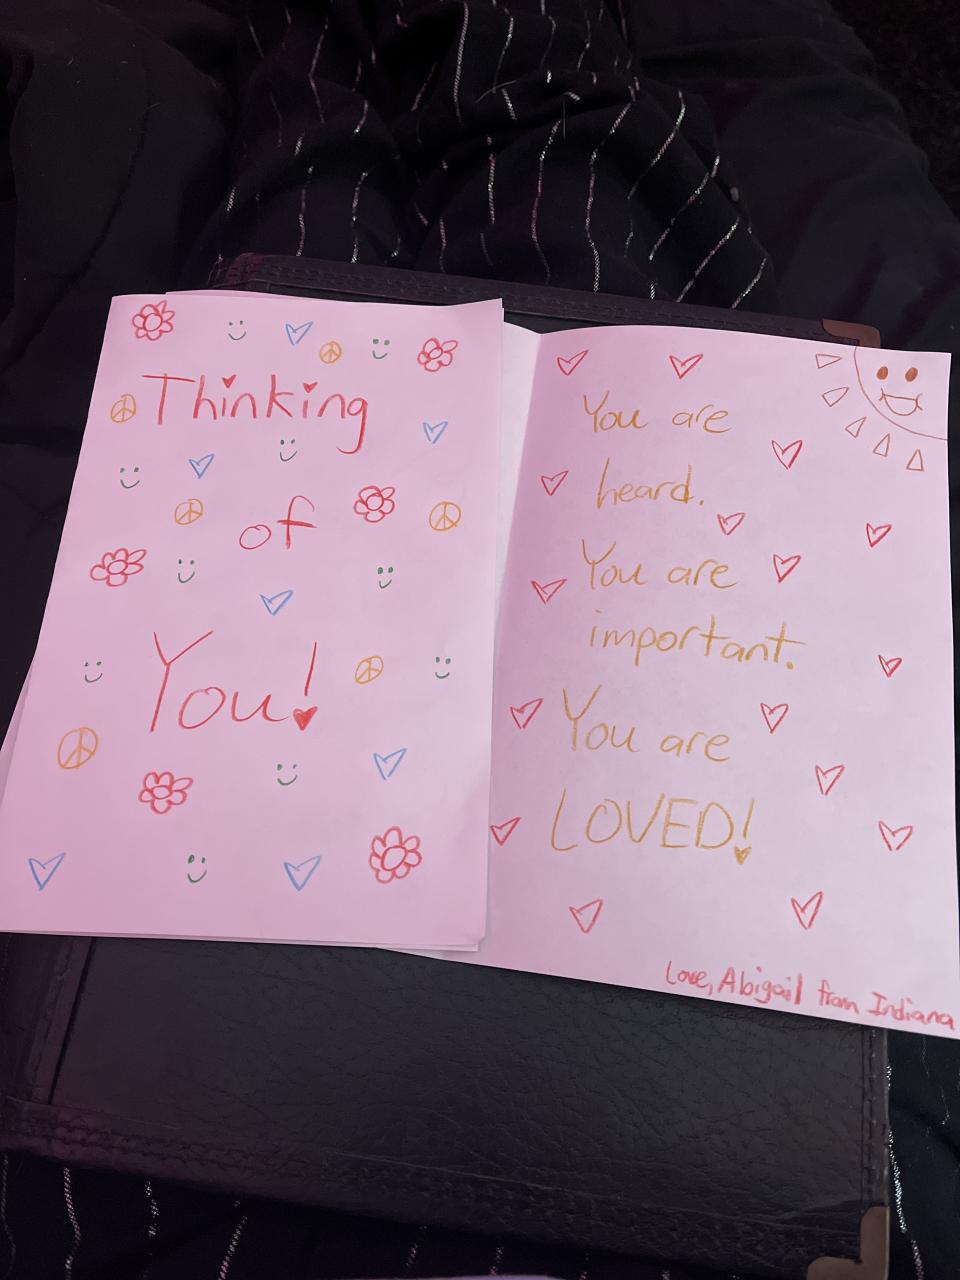 Thinking
of
You!
You are
heard.
You are
important.
You are
LOVED!
Love, Abigail from Indiana